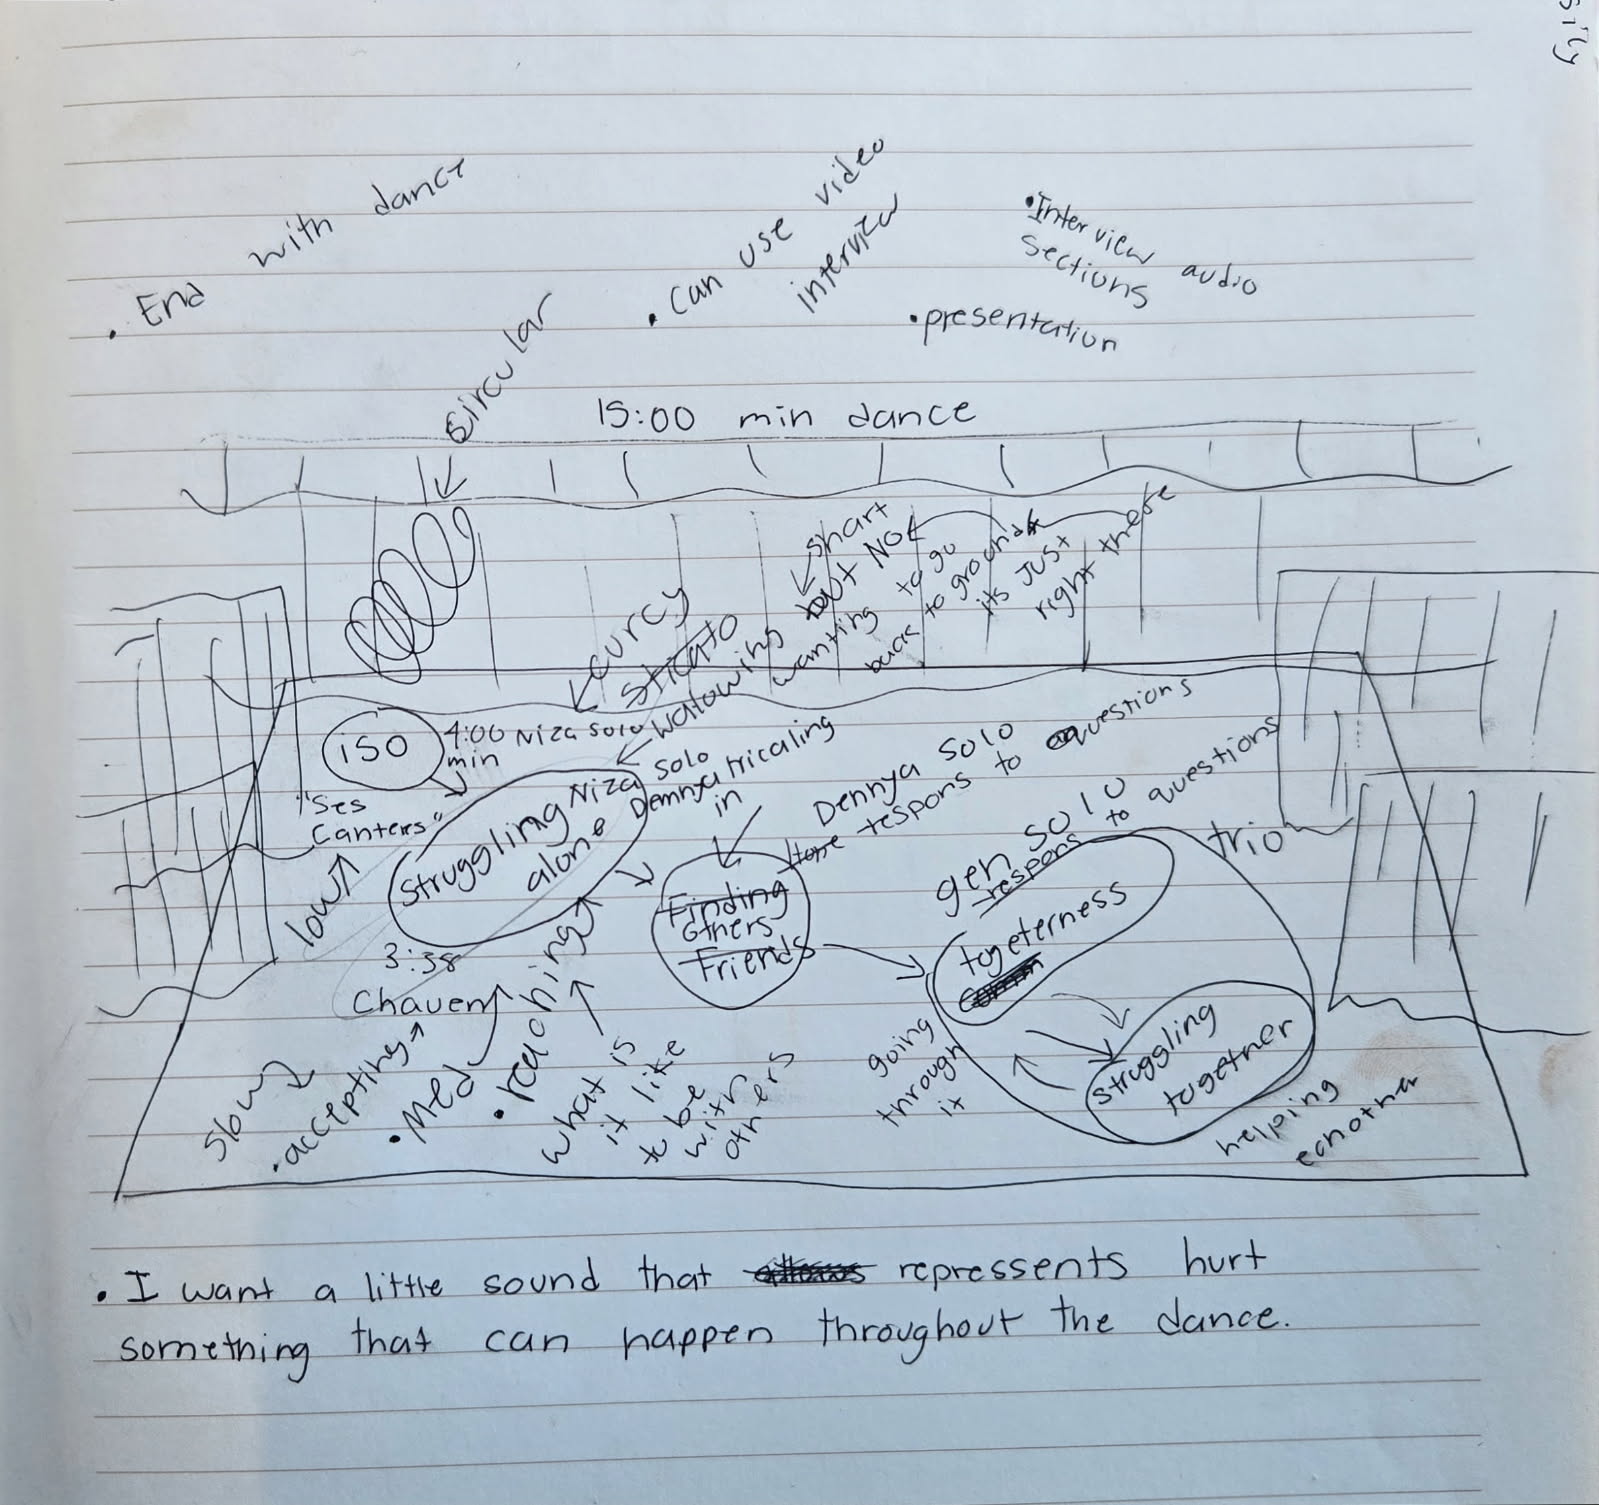 sity
• End with dance
• Can use video
interview
• Interview audio
Sections
• presentation
circular
15:00 min dance
short
but NOt
wanting to go
back to ground
its Just
right there
curcy
sticato
iso
4:00 Niza solo
min
"Ses
Canters"
low
Struggling
alone
Niza solo
Dennya tricaling
in
Dennya solo
respons to questions
Finding
Others
Friends
gen solo
respons to questions
trio
togeterness
Struggling
together
going
through
it
helping
eachother
3:38
Chaven
slow
• accepting
• Med
• reaching
what is
it like
to be
with
others
• I want a little sound that repressents hurt
something that can happen throughout the dance.